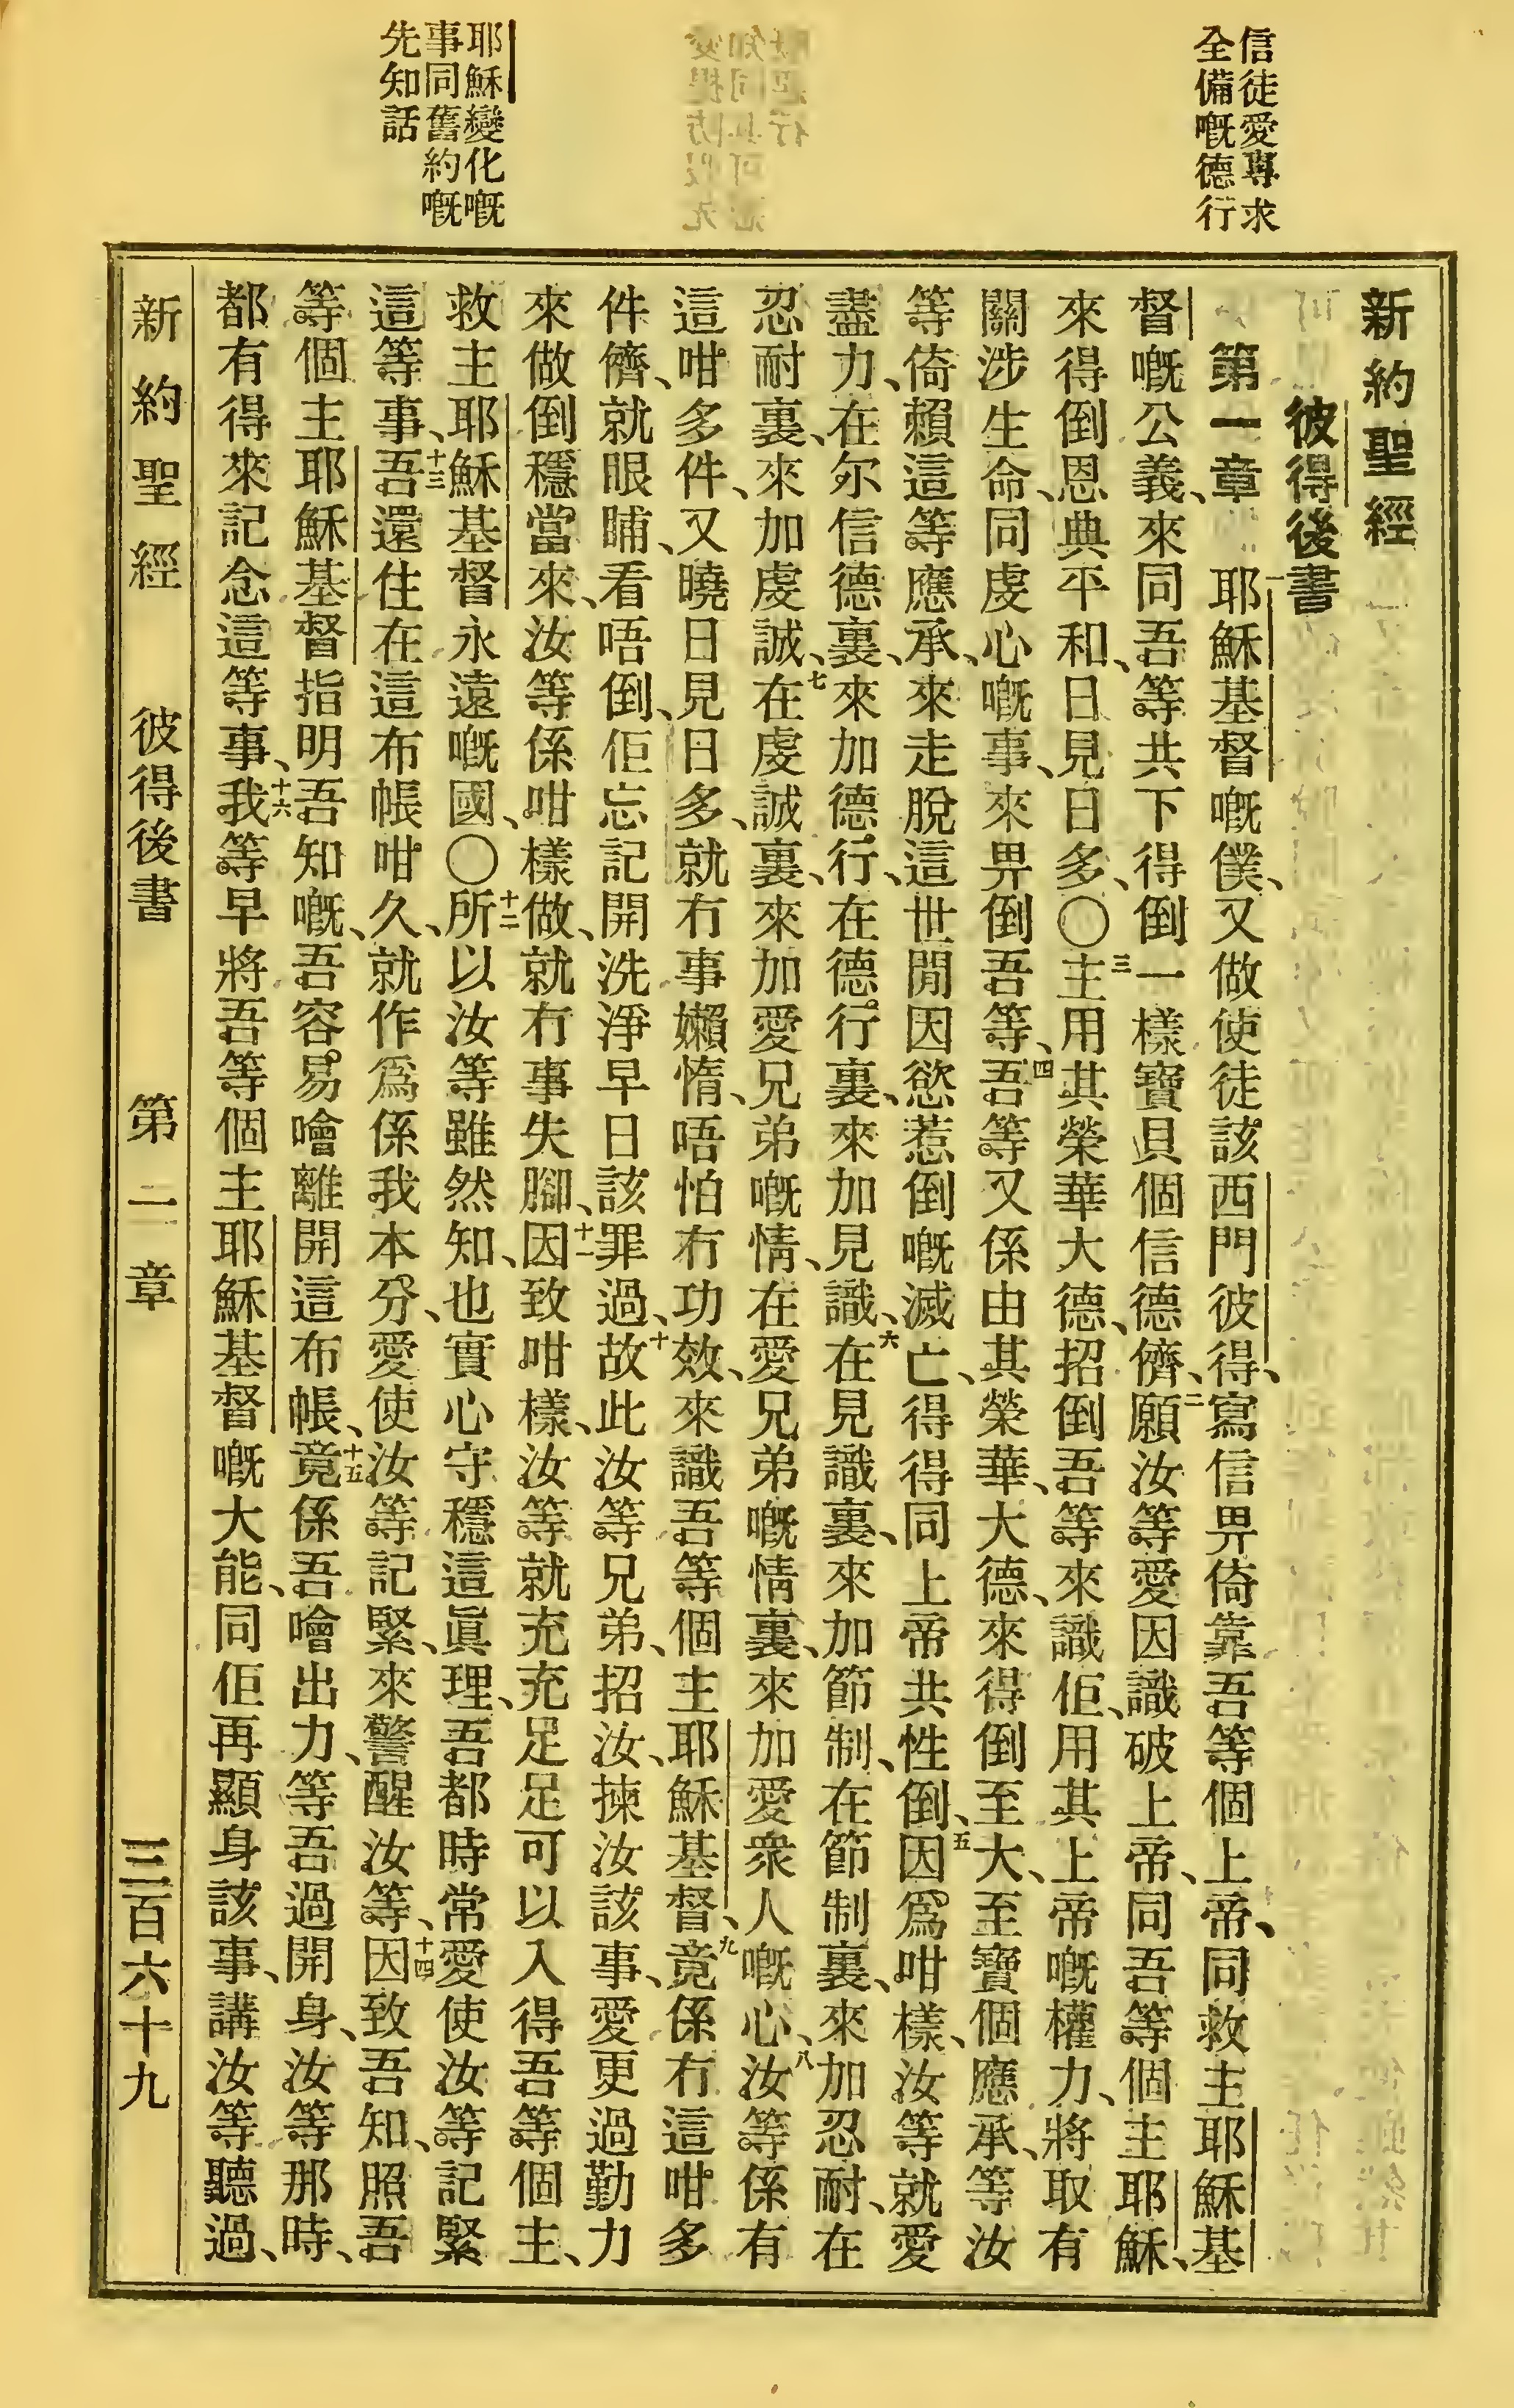 信徒愛專求
全備嘅德行
耶穌變化嘅
事同舊約嘅
先知話
新約聖經
彼得後書
第一章 一耶穌基督嘅僕、又做使徒該西門彼得、寫信畀倚靠吾等個上帝、同救主耶穌基
督嘅公義、來同吾等共下得倒一樣寶貝個信德儕、二願汝等愛因識破上帝、同吾等個主耶穌、
來得倒恩典平和、日見日多、〇三主用其榮華大德、招倒吾等來識佢、用其上帝嘅權力、將取有
關涉生命、同虔心嘅事、來畀倒吾等、四吾等又係由其榮華、大德、來得倒至大、至寶個應承、等汝
等倚賴這等應承、來走脫這世間因慾惹倒嘅滅亡、得得同上帝共性倒、五因爲咁樣、汝等就愛
盡力、在尔信德裏、來加德行、在德行裏、來加見識、六在見識裏、來加節制、在節制裏、來加忍耐、在
忍耐裏、來加虔誠、七在虔誠裏、來加愛兄弟嘅情、在愛兄弟嘅情裏、來加愛衆人嘅心、八汝等係有
這咁多件、又曉日見日多、就冇事嬾惰、唔怕冇功效、來識吾等個主耶穌基督、九竟係冇這咁多
件儕、就眼晡、看唔倒、佢忘記開洗淨早日該罪過、十故此汝等兄弟、招汝、揀汝該事、愛更過勤力
來做倒穩當來、汝等係咁樣做、就冇事失腳、十一因致咁樣、汝等就充充足足可以入得吾等個主、
救主耶穌基督永遠嘅國、〇十二所以汝等雖然知、也實心守穩這眞理、吾都時常愛使汝等記緊
這等事、十三吾還住在這布帳咁久、就作爲係我本分、愛使汝等記緊、來警醒汝等、十四因致吾知、照吾
等個主耶穌基督指明吾知嘅、吾容易噲離開這布帳、十五竟係吾噲出力、等吾過開身、汝等那時、
都有得來記念這等事、十六我等早將吾等個主耶穌基督嘅大能、同佢再顯身該事、講汝等聽過、
新約聖經 彼得後書 第一章 三百六十九